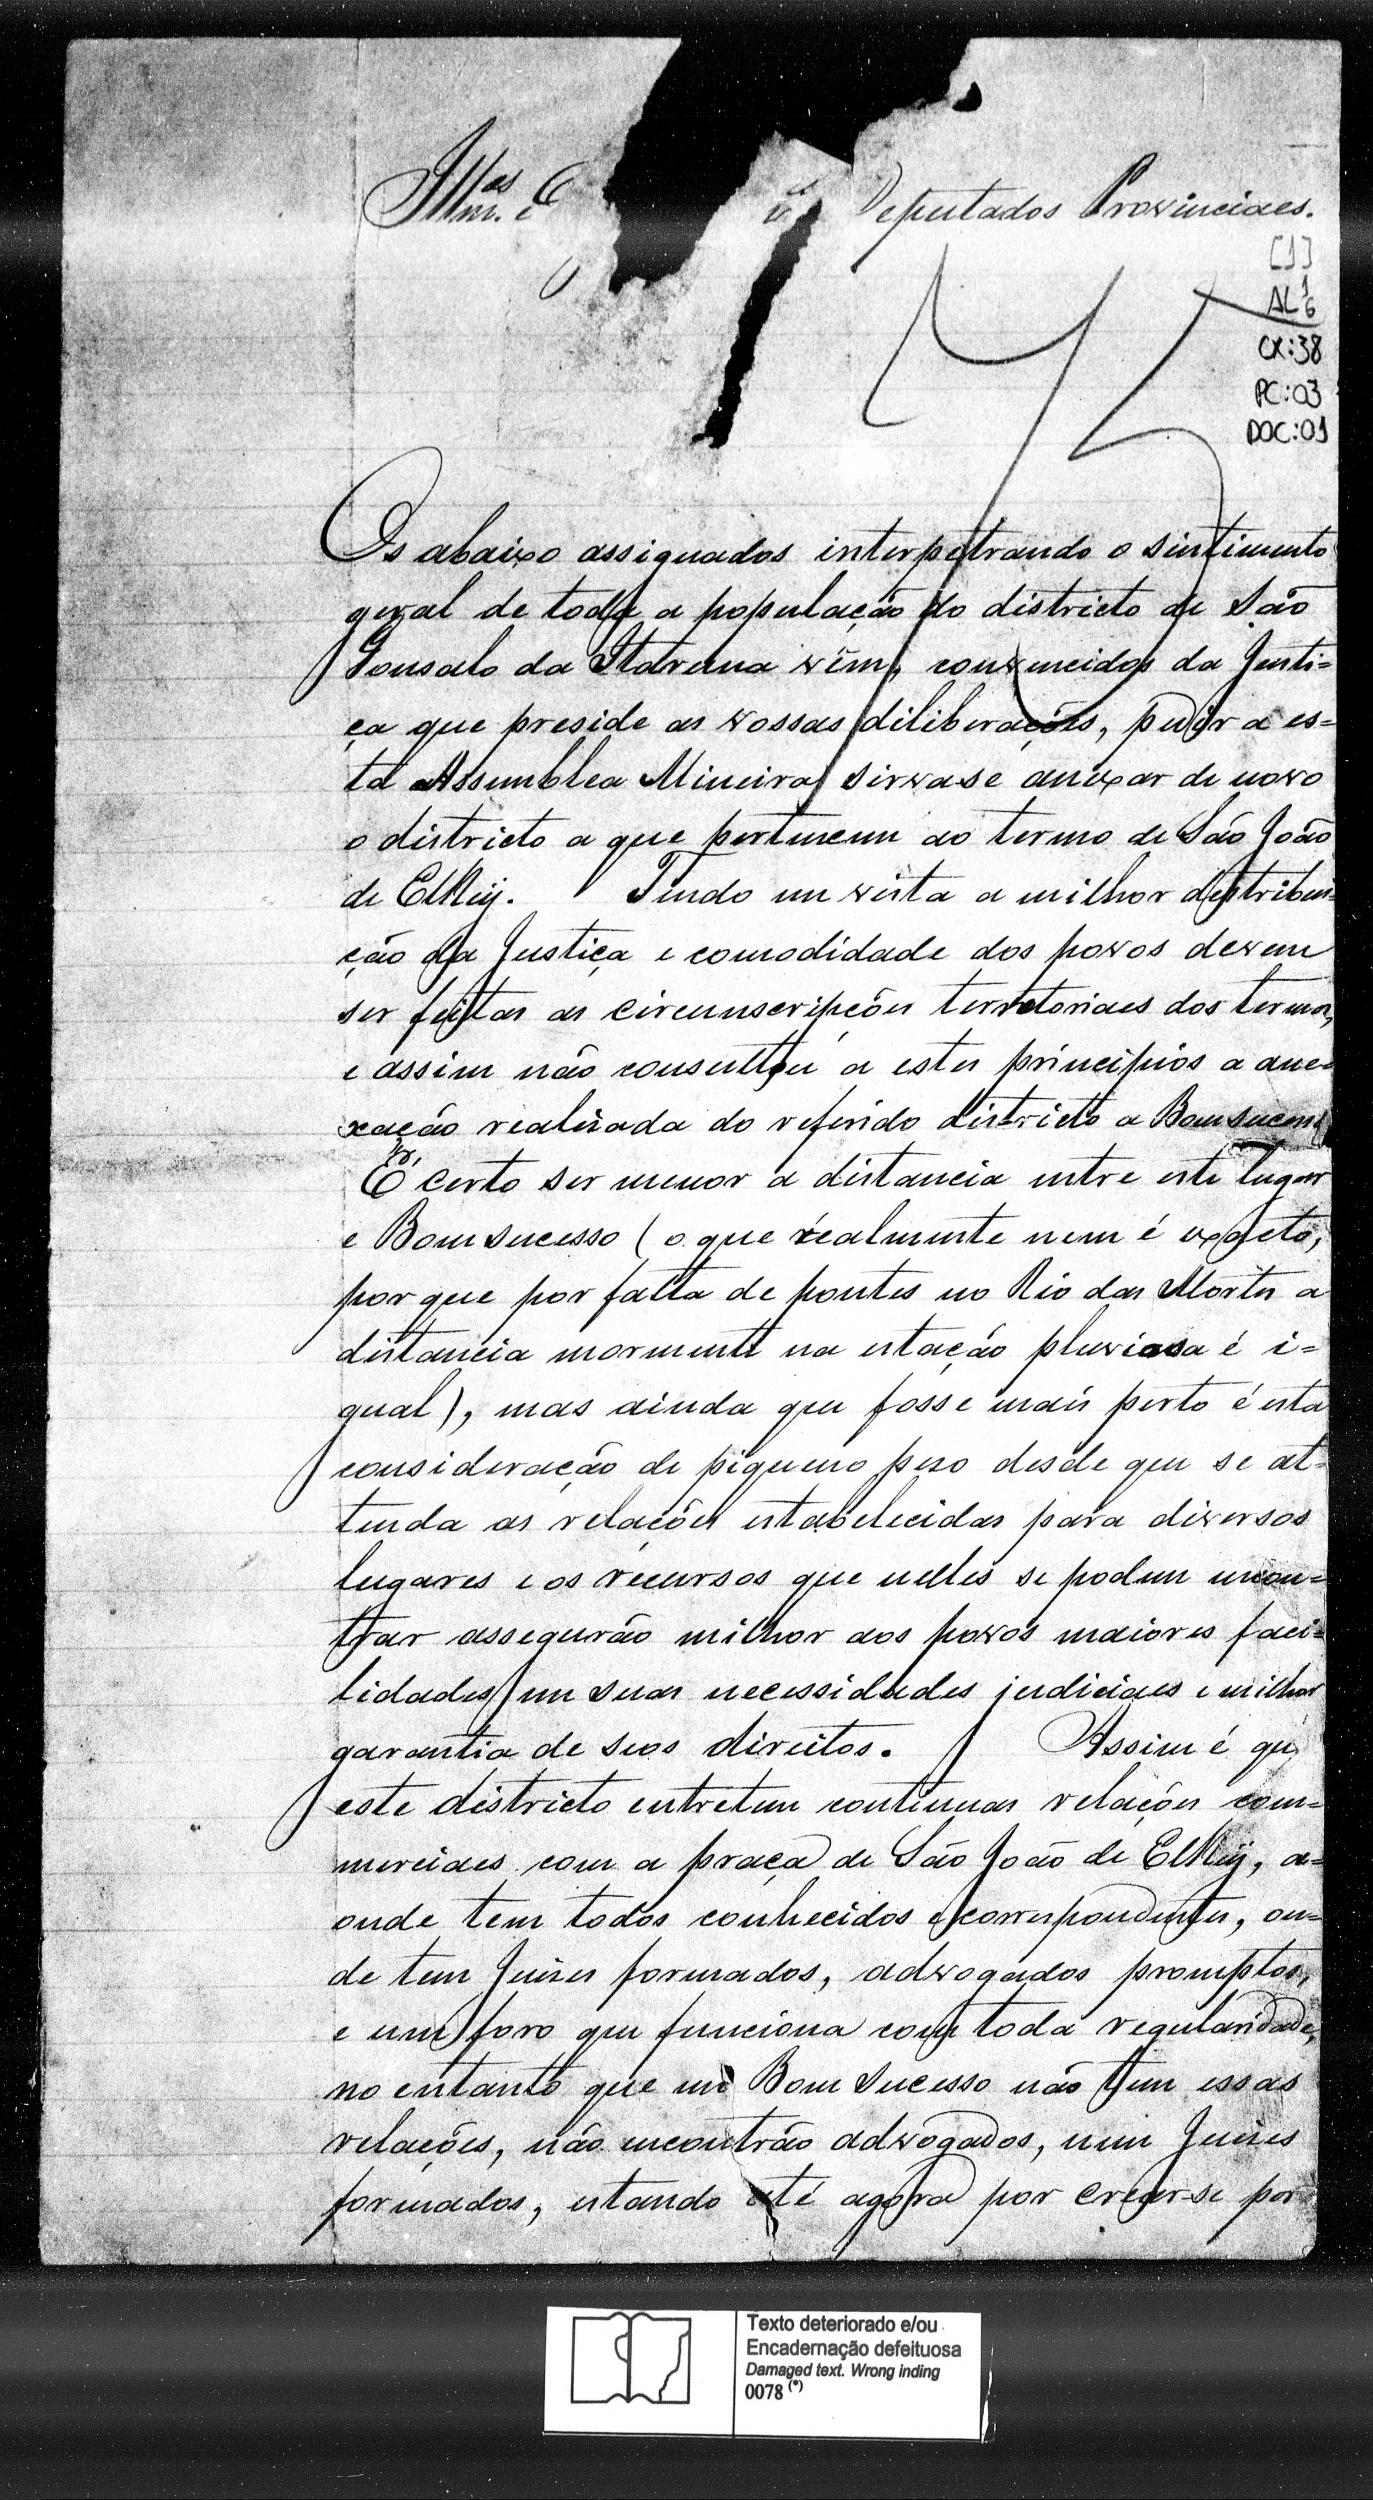 Illm.es e
Deputados Provinciaes.
[1]
AL 1 6
CX:38
PC:03
DOC:01
Os abaixo assignados interpetrando o sintimento
geral de toda a população do districto de São
Gonsalo da Itaruna vêm, convencidos da Justi=
ça que preside as vossas diliberações, pedir a es=
ta Assemblea Mineira sirva se anexar de novo
o districto a que pertencem ao termo de São João
de ElRey. Tendo em vista a milhor destribui=
ção da Justiça e comodidade dos povos devem
ser feitas as circunscripções terretoriaes dos termos,
e assim não consultou a estes principios a ane=
xação realisada do referido districto a Bomsucesso
É certo ser menor a distancia entre este lugar
e Bomsucesso (o que realmente nem é exacto,
por que por falta de pontes no Rio das Mortes a
distancia mormente na estação pluviosa é i=
gual), mas ainda que fosse mais perto é esta
consideração de piqueno peso desde que se at=
tenda as relações estabelecidas para diversos
lugares e os recursos que nelles se podem encon=
trar assegurão milhor aos povos maiores faci=
lidades em suas necessidades judiciaes e milhor
garantia de seos direitos. Assim é que
este districto entretem continuas relações com=
merciaes com a praça de São João de ElRey, a=
onde tem todos conhecidos e correspondentes, on=
de tem Juises formados, advogados promptos,
e um foro que funciona com toda regularidade,
no entanto que em Bom Sucesso não tem essas
relações, não encontrão advogados, nem Juises
formados, estando até agora por crear-se por
Texto deteriorado e/ou
Encadernação defeituosa
Damaged text. Wrong inding
0078 (*)